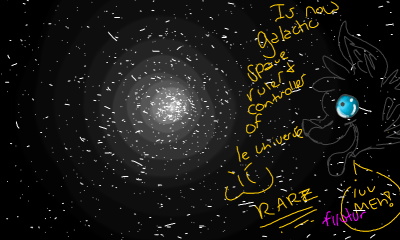 Is now
galactic
space
ruler &
controller
of
le universe
:(
RARE
YUU
MEH?